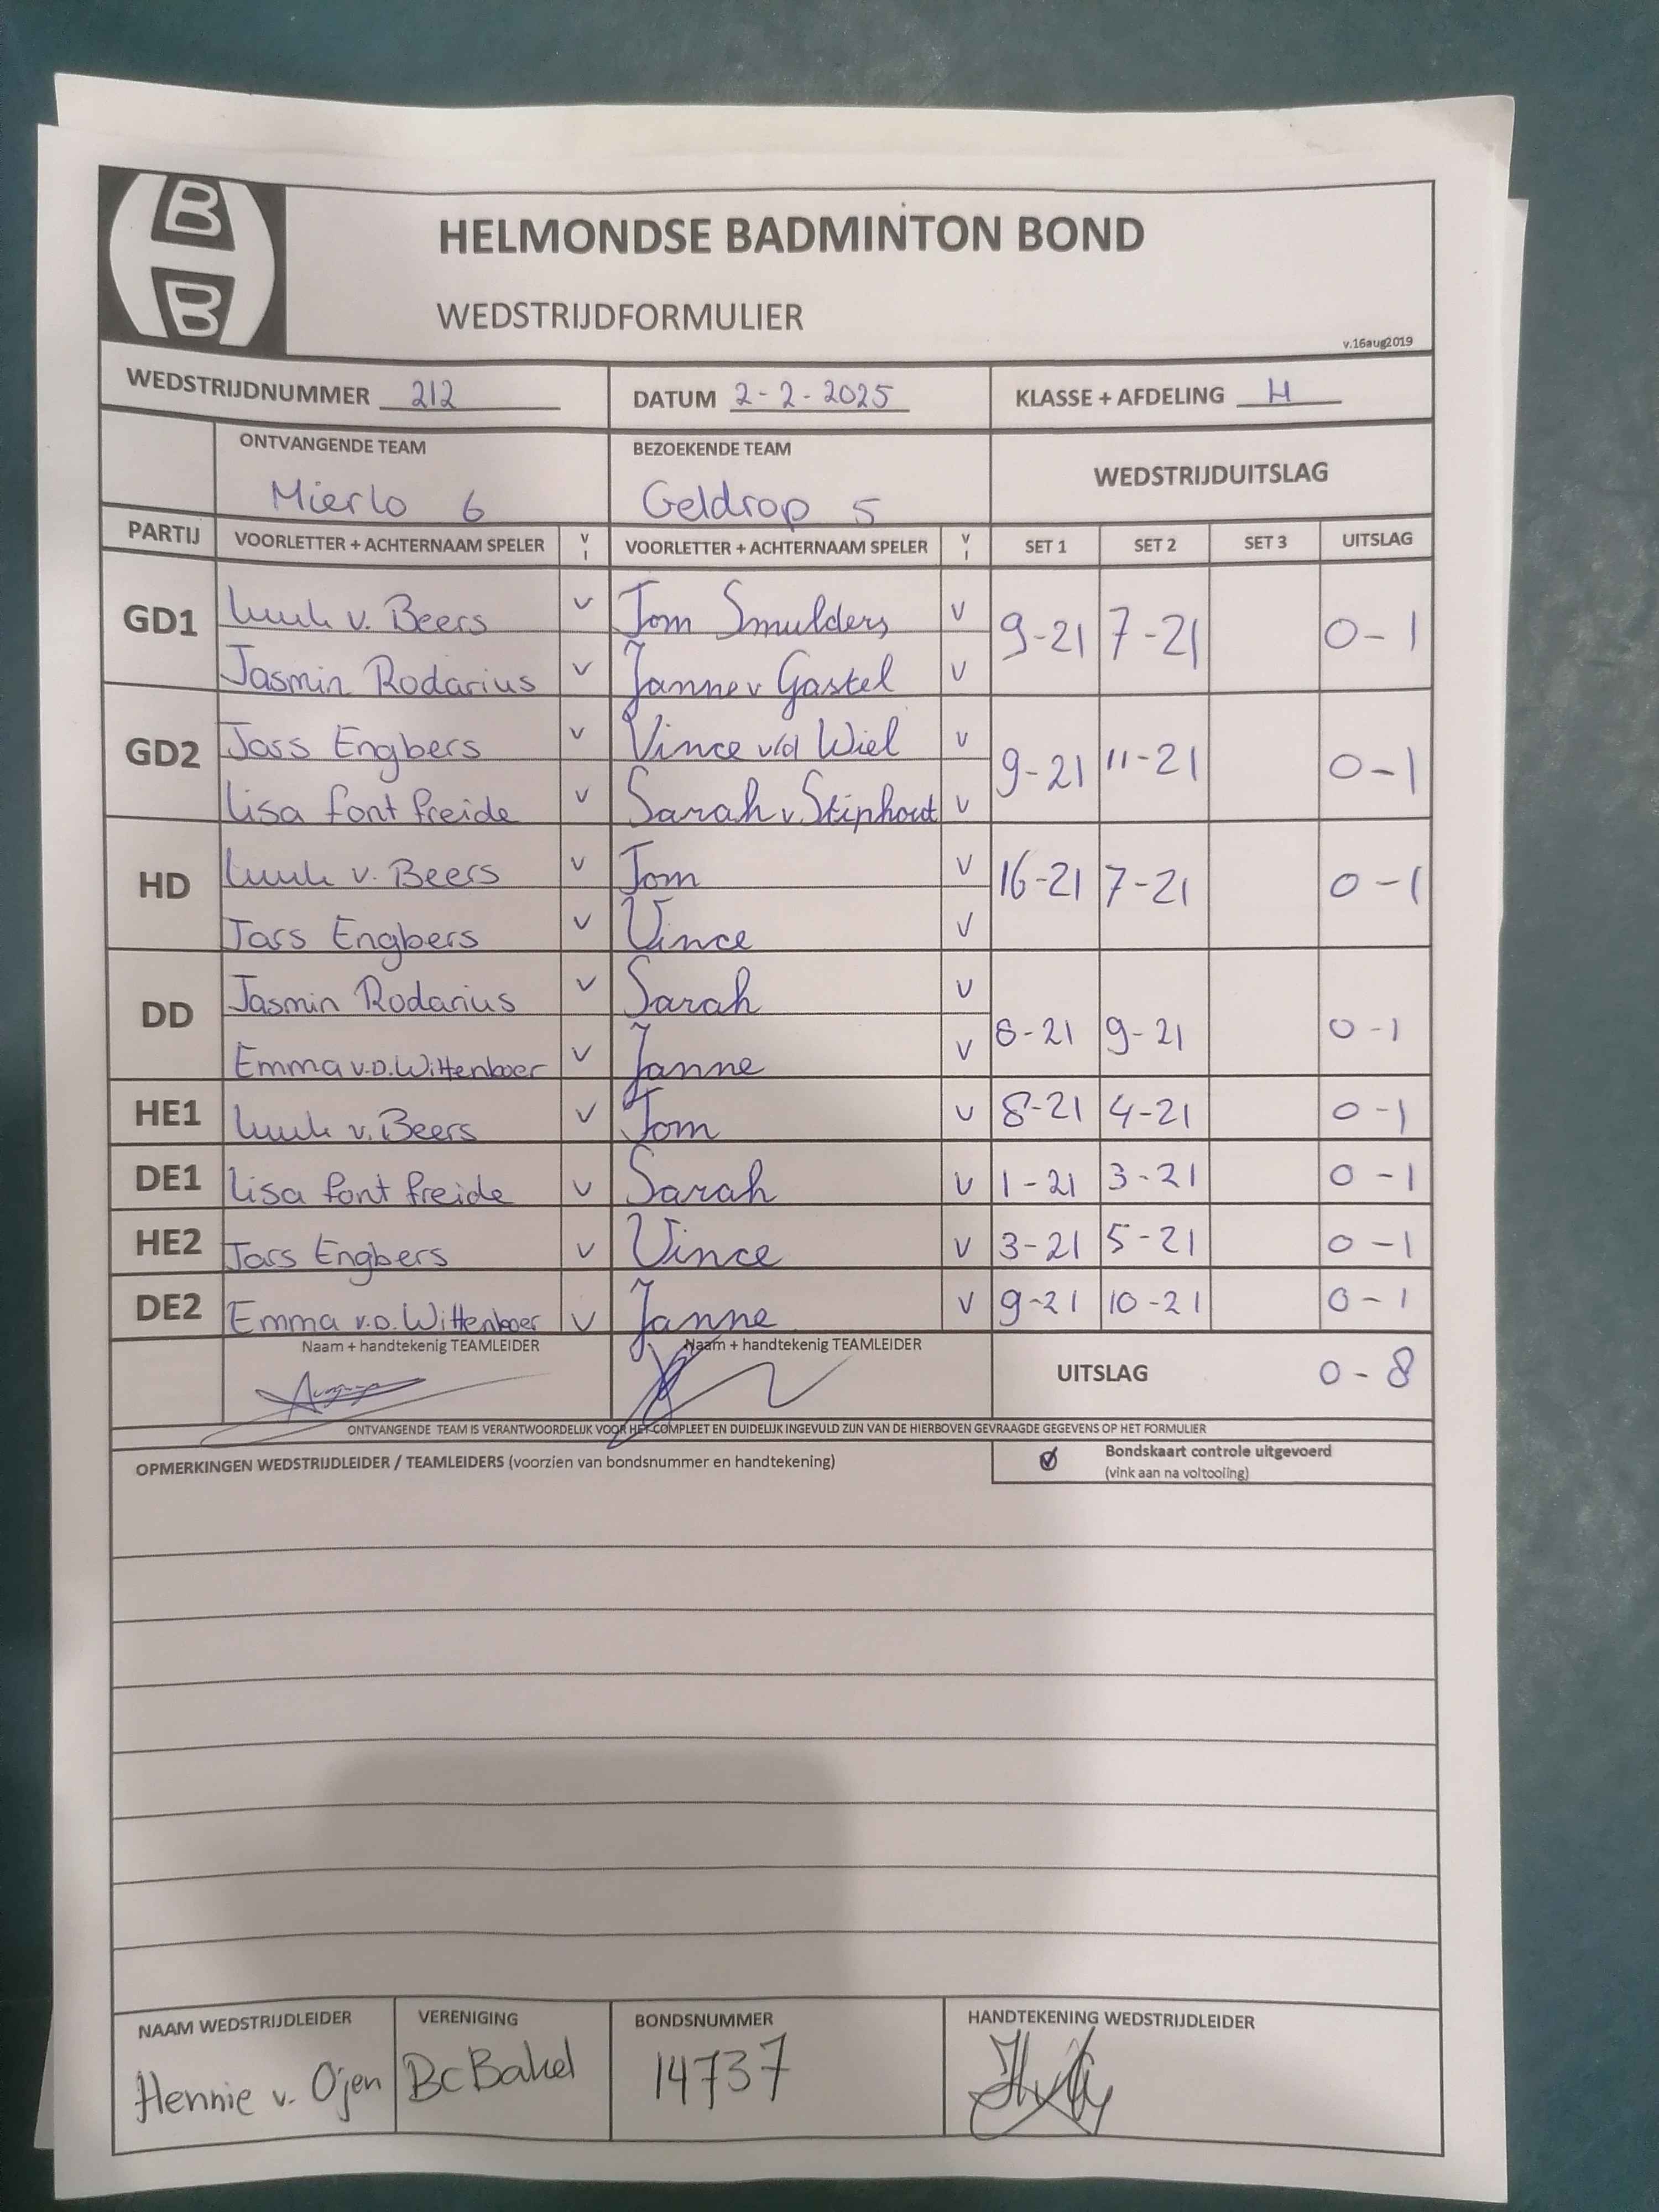 B
B
HELMONDSE BADMINTON BOND
WEDSTRIJDFORMULIER
v.16aug2019
WEDSTRIJDNUMMER 212 DATUM 2-2-2025 KLASSE + AFDELING H
ONTVANGENDE TEAM BEZOEKENDE TEAM WEDSTRIJDUITSLAG
Mierlo 6 Geldrop 5
PARTIJ VOORLETTER + ACHTERNAAM SPELER V I VOORLETTER + ACHTERNAAM SPELER V I SET 1 SET 2 SET 3 UITSLAG
GD1 Luuk v. Beers v Tom Smulders v 9-21 7-21 0-1
Jasmin Rodarius v Janne v Gastel v
GD2 Jass Engbers v Vince v/d Wiel v 9-21 11-21 0-1
Lisa font freide v Sarah v. Stiphout v
HD Luuk v. Beers v Tom v 16-21 7-21 0-1
Jars Engbers v Vince v
DD Jasmin Rodarius v Sarah v 8-21 9-21 0-1
Emma v.D. Wittenboer v Janne v
HE1 Luuk v. Beers v Tom v 8-21 4-21 0-1
DE1 Lisa font freide v Sarah v 1-21 3-21 0-1
HE2 Jars Engbers v Vince v 3-21 5-21 0-1
DE2 Emma v.D. Wittenboer v Janne v 9-21 10-21 0-1
Naam + handtekenig TEAMLEIDER Naam + handtekenig TEAMLEIDER UITSLAG 0-8
ONTVANGENDE TEAM IS VERANTWOORDELIJK VOOR HET COMPLEET EN DUIDELIJK INGEVULD ZIJN VAN DE HIERBOVEN GEVRAAGDE GEGEVENS OP HET FORMULIER
OPMERKINGEN WEDSTRIJDLEIDER / TEAMLEIDERS (voorzien van bondsnummer en handtekening) Bondskaart controle uitgevoerd
(vink aan na voltooiing)
NAAM WEDSTRIJDLEIDER VERENIGING BONDSNUMMER HANDTEKENING WEDSTRIJDLEIDER
Hennie v. Ojen BC Bakel 14737